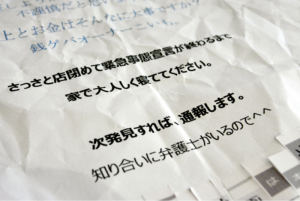 上とお金はそんなに大事ですか
銭ゲバオーナー
さっさと店閉めて緊急事態宣言が終わるまで
家で大人しく寝ててください。
次発見すれば、通報します。
知り合いに弁護士がいるのでへへ
は